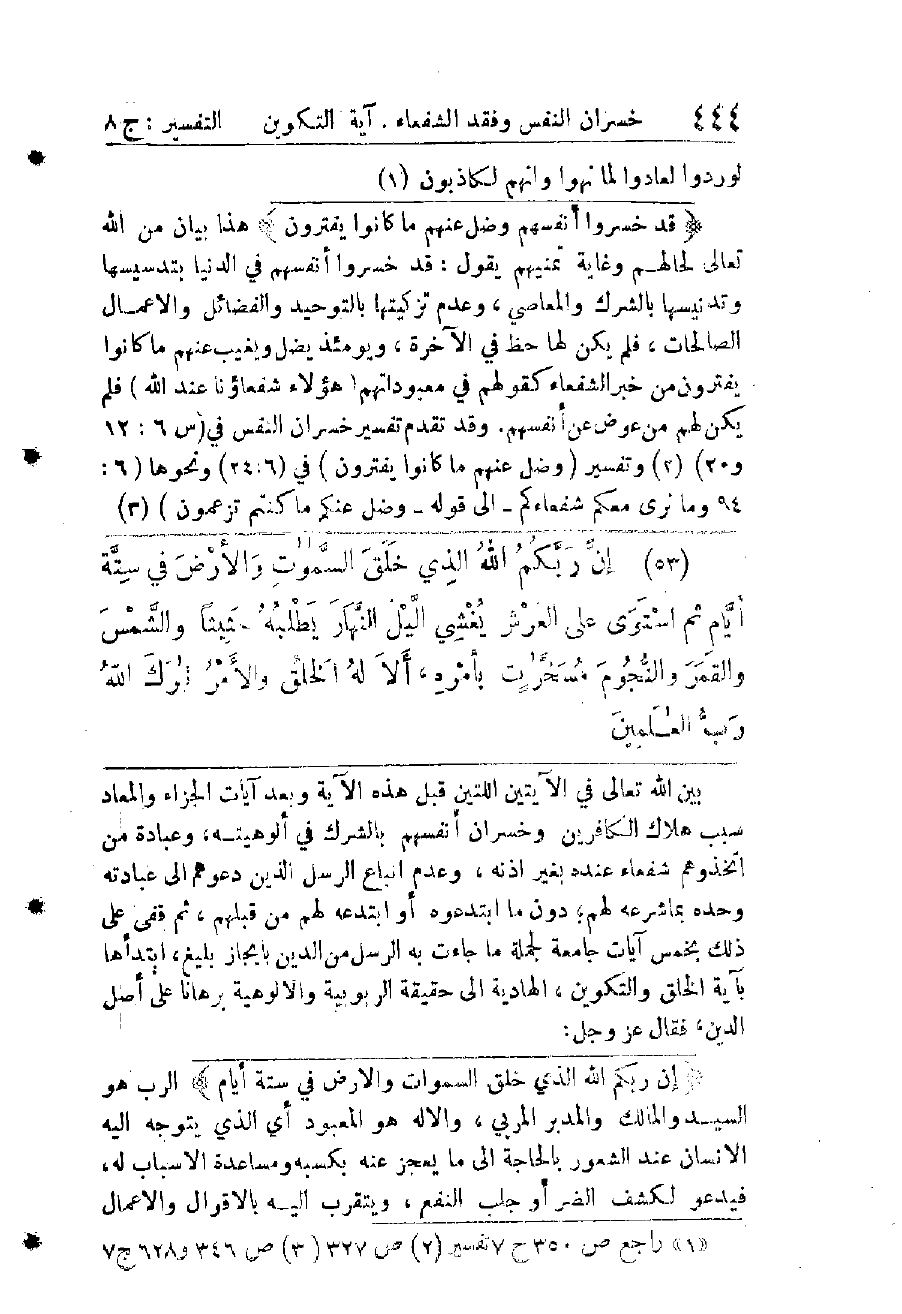 ٤٤٤ خسران النفس وفقد الشفعاء . آية التكوين التفسير : ج ٨
لوردوا لعادوا لما نهوا وانهم لكاذبون (١)
﴿ قد خسروا أنفسهم وضل عنهم ما كانوا يفترون ﴾ هذا بيان من الله
تعالى لحالهم وغاية تمنيهم يقول : قد خسروا أنفسهم في الدنيا بتدسيسها
وتدنيسها بالشرك والمعاصي ، وعدم تزكيتها بالتوحيد والفضائل والاعمال
الصالحات ، فلم يكن لها حظ في الآخرة ، ويومئذ يضل ويغيب عنهم ما كانوا
يفترون من خبر الشفعاء كقولهم في معبوداتهم ( هؤلاء شفعاؤنا عند الله ) فلم
يكن لهم من عوض عن أنفسهم. وقد تقدم تفسير خسران النفس في (س ٦ : ١٢
و٢٠) (٢) وتفسير ( وضل عنهم ما كانوا يفترون ) في (٦:٢٤) ونحوها ( ٦ :
٩٤ وما نرى معكم شفعاءكم ـ الى قوله ـ وضل عنكم ما كنتم تزعمون ) (٣)
(٥٣) إِنَّ رَبَّكُمُ اللهُ الَّذِي خَلَقَ السَّمٰوٰتِ وَالْأَرْضَ فِي سِتَّةِ
أَيَّامٍ ثم اسْتَوَى على العَرْشِ يُغْشِي الَّيْلَ النَّهَارَ يَطْلُبُهُ حَثِيثاً والشَّمْسَ
والقَمَرَ والنُّجُومَ مُسَخَّرٰتٍ بأمْرِهِ ، أَلاَ لهُ الخَلْقُ والأَمْرُ تَبٰرَكَ اللهُ
رَبُّ العٰلَمِينَ
بين الله تعالى في الآيتين اللتين قبل هذه الآية وبعد آيات الجزاء والمعاد
سبب هلاك الكافرين وخسران أنفسهم بالشرك في ألوهيته، وعبادة من
اتخذوهم شفعاء عنده بغير اذنه ، وعدم اتباع الرسل الذين دعوهم الى عبادته
وحده بما شرعه لهم؛ دون ما ابتدعوه أو ابتدعه لهم من قبلهم ، ثم قفى على
ذلك بخمس آيات جامعة لجملة ما جاءت به الرسل من الدين بايجاز بليغ، ابتدأها
بآية الخلق والتكوين ، الهادية الى حقيقة الربوبية والالوهية برهانا على أصل
الدين، فقال عز وجل:
﴿ إن ربكم الله الذي خلق السموات والارض في ستة أيام ﴾ الرب هو
السيد والمالك والمدبر المربي ، والاله هو المعبود أي الذي يتوجه اليه
الانسان عند الشعور بالحاجة الى ما يعجز عنه بكسبه ومساعدة الاسباب له،
فيدعو لكشف الضر أو جلب النفع ، ويتقرب اليه بالاقوال والاعمال
«١» راجع ص ٣٥٠ ج ٧ تفسير (٢) ص ٣٢٧ ( ٣) ص ٣٤٦ و٦٢٨ ج٧